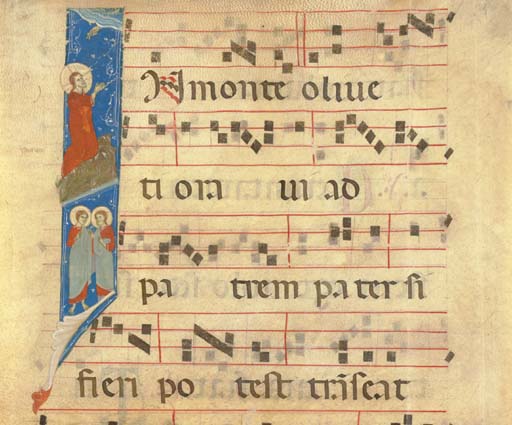 IN monte oliue
ti ora ui ad
pa trem pa ter si
fieri po test trãseat